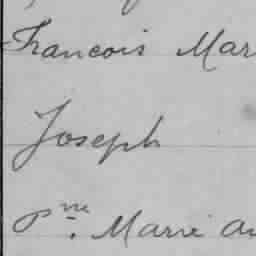 Francois Mar
Joseph
Pne. Marie au